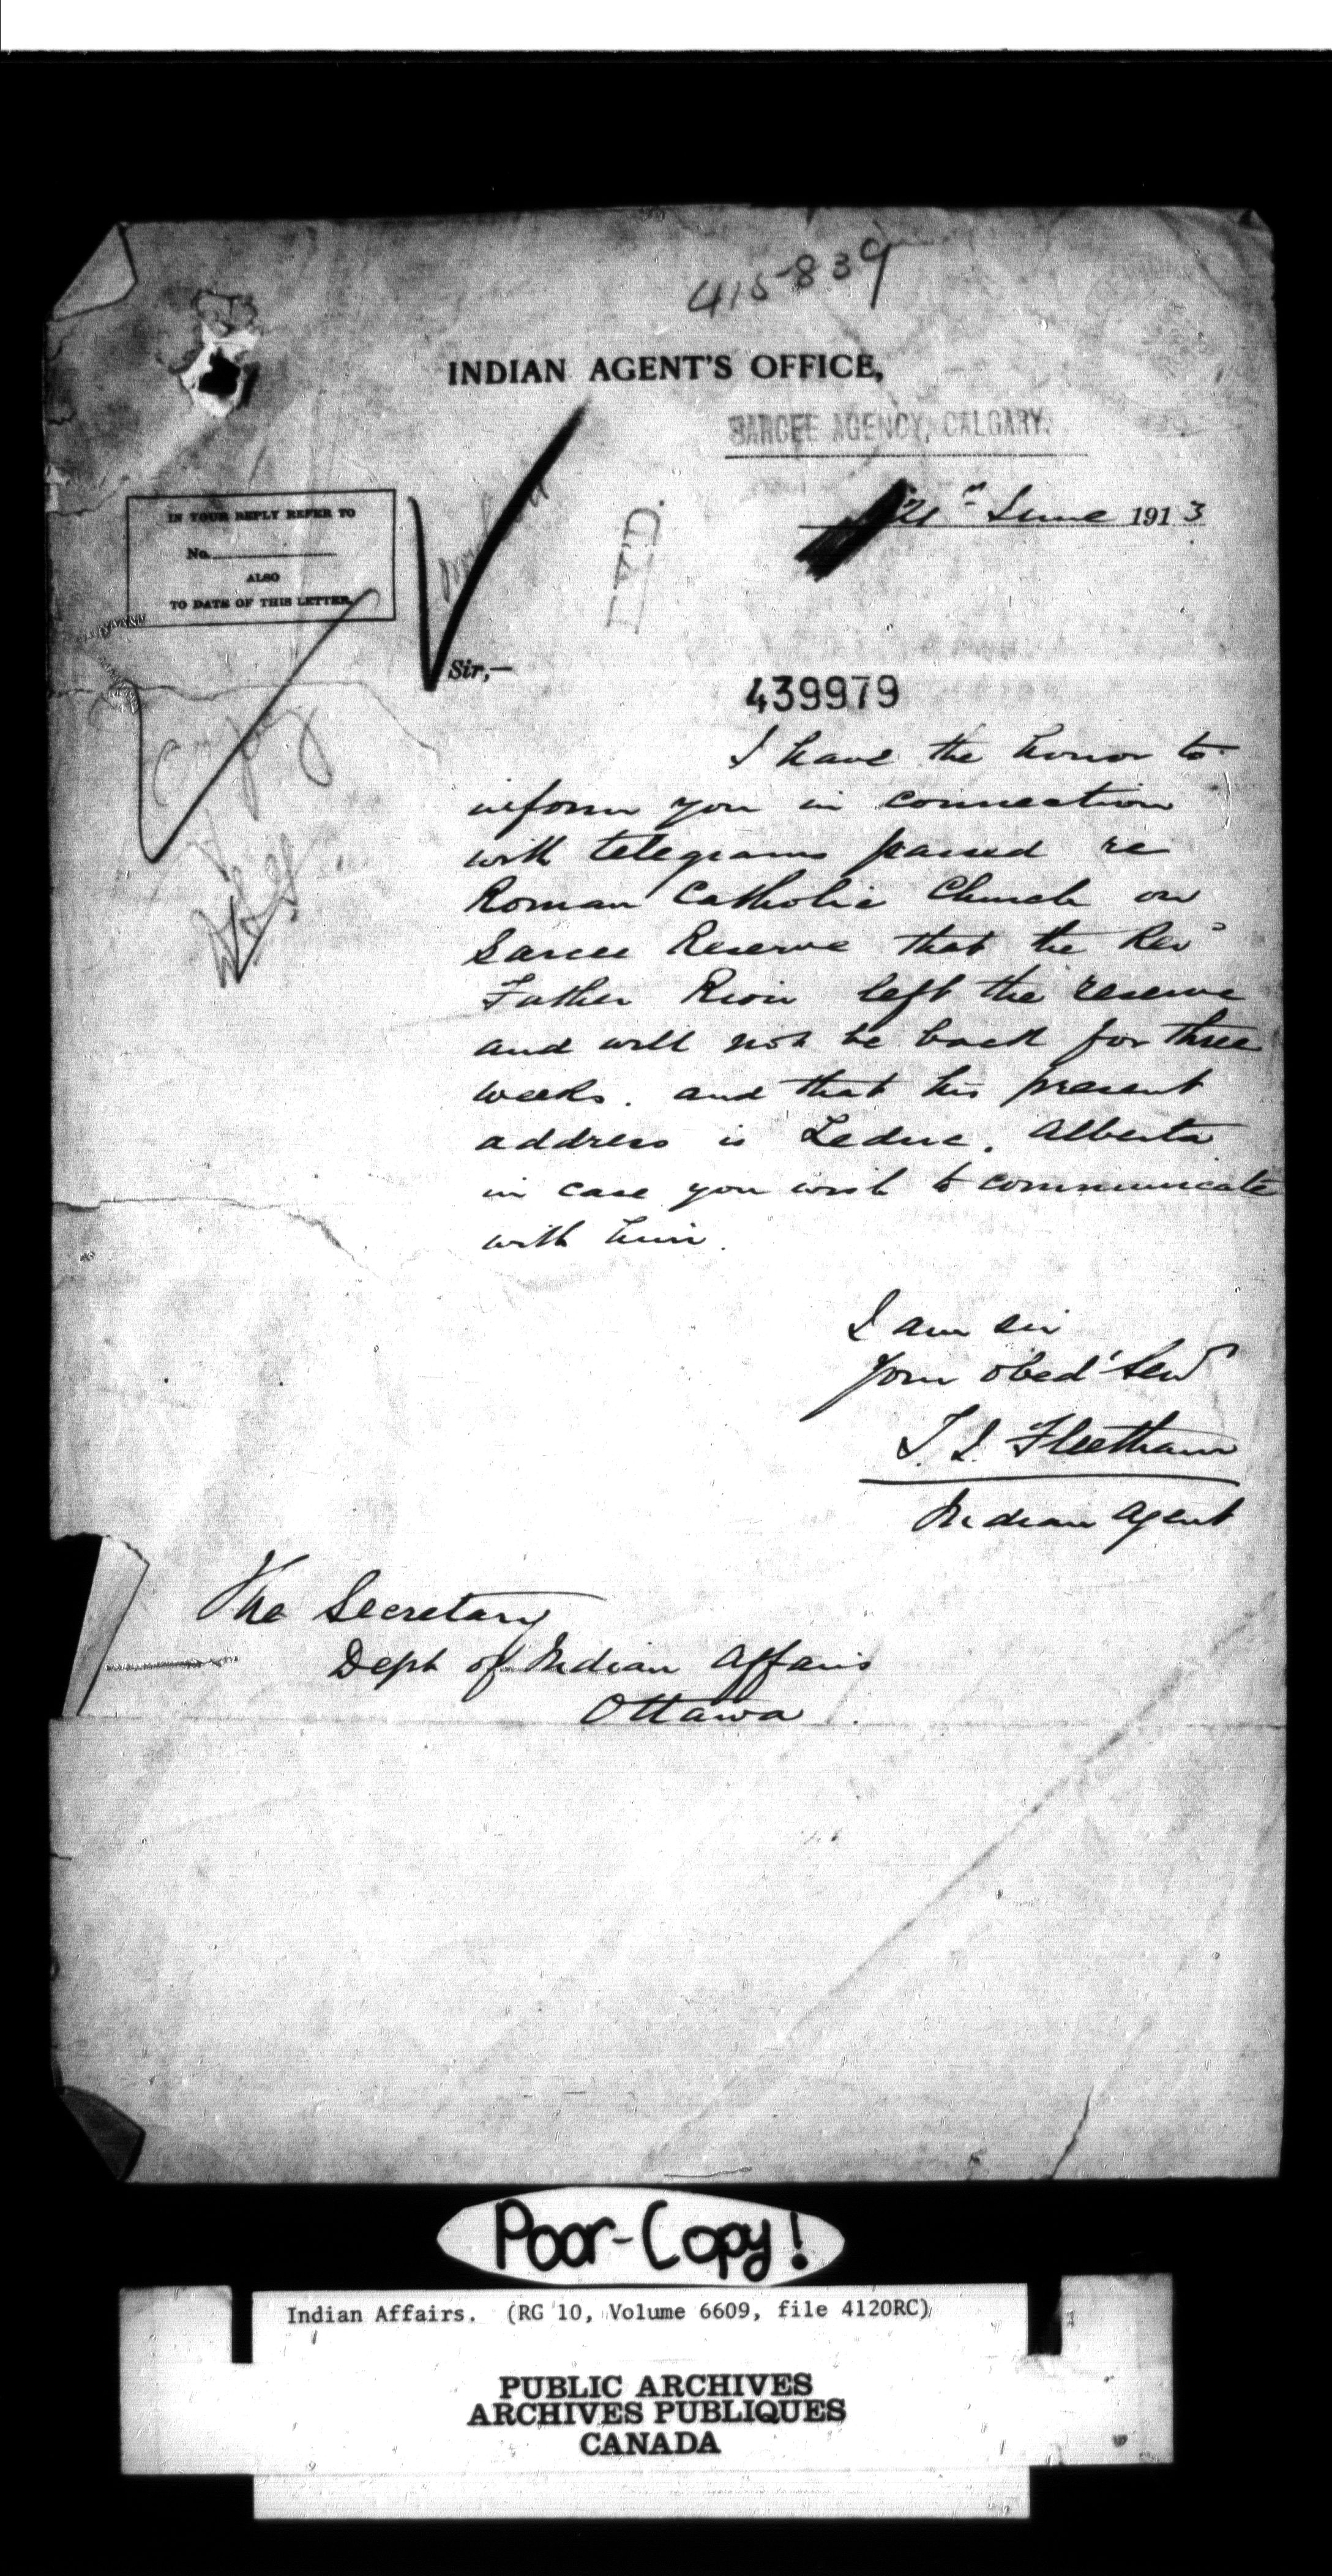 415839
INDIAN AGENT'S OFFICE,
SARCEE AGENCY, CALGARY.
June 1913
IN YOUR REPLY REFER TO
No.
ALSO
TO DATE OF THIS LETTER.
Sir,—
439979
Copy
I have the honor to
inform you in connection
with telegrams passed re
Roman Catholic Church on
Sarcee Reserve that the Revd
Father left the reserve
and will not be back for three
weeks. and that his present
address is Leduc. Alberta
in case you wish to communicate
with him.
I am sir
Your obed' Serv
T. J. Fleetham
Indian Agent
The Secretary
Dept of Indian Affairs
Ottawa.
Poor-Copy!
Indian Affairs. (RG 10, Volume 6609, file 4120RC)
PUBLIC ARCHIVES
ARCHIVES PUBLIQUES
CANADA